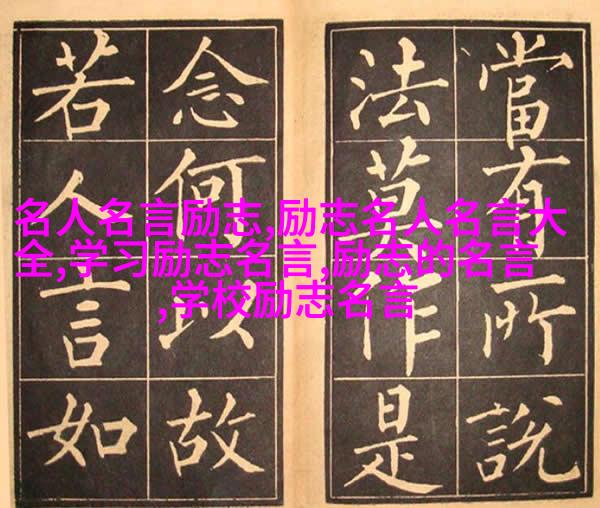 名人名言励志,励志名人名言大
全,学习励志名言,励志的名言
,学校励志名言
當有所說
法莫作是
念何以故
若人言如